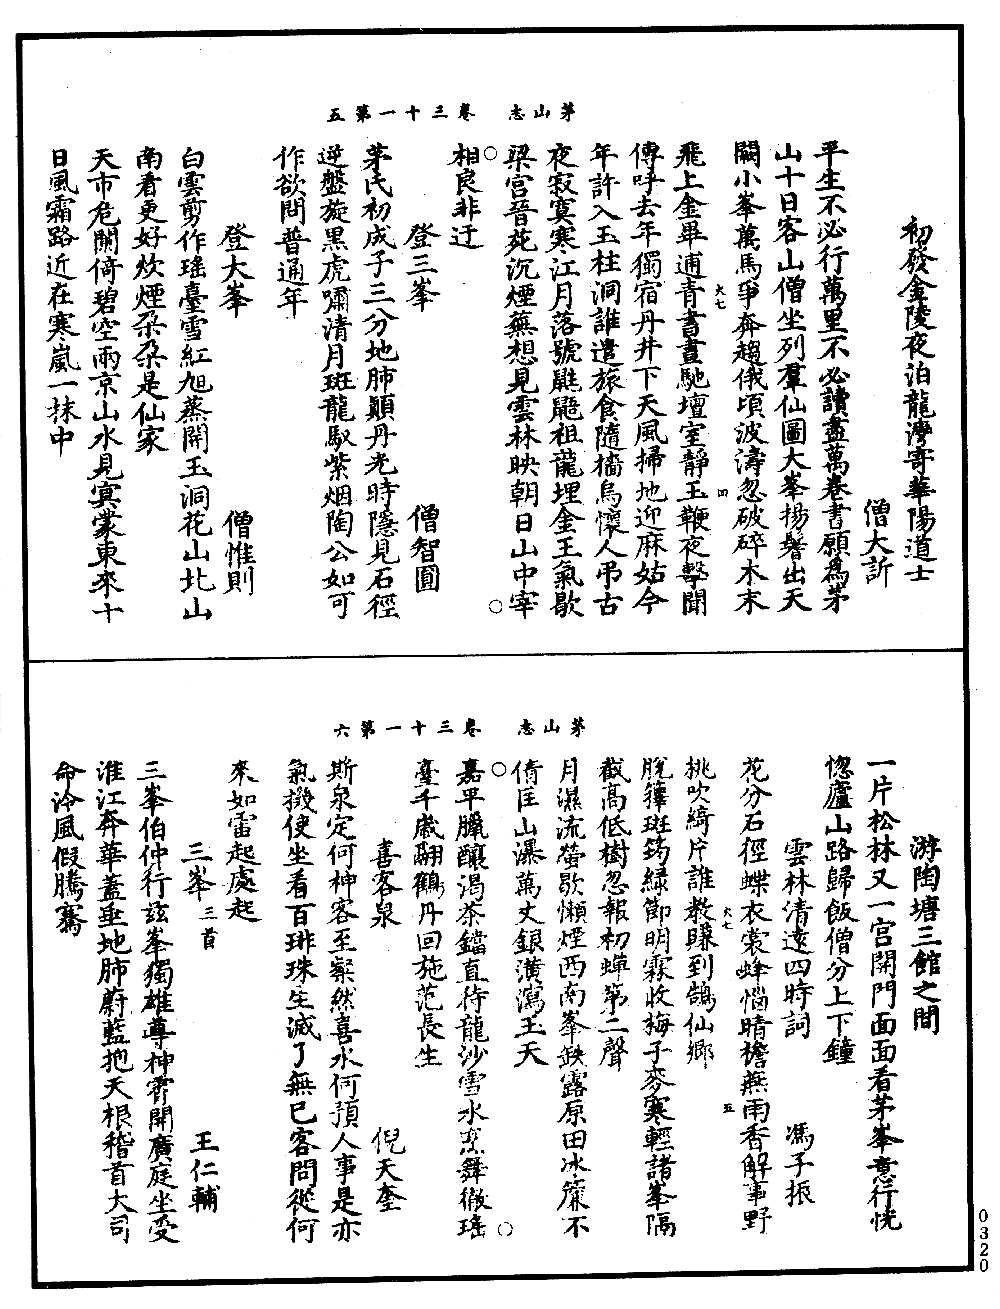 茅山志　卷三十一第五
初發金陵夜泊龍灣寄華陽道士
僧大訢
平生不必行萬里不必讀盡萬卷書願為茅
山十日客山僧坐列羣仙圖大峯揚鬐出天
闕小峯萬馬爭奔趨俄頃波濤忽破碎木末
飛上金畢逋青書晝馳壇室靜玉鞭夜擊聞
傳呼去年獨宿丹井下天風掃地迎麻姑今
年許入玉柱洞誰遣旅食隨檣烏懷人弔古
夜寂寞寒江月落號鼪鼯祖龍埋金王氣歇
梁宮晉苑沉煙蕪想見雲林映朝日山中宰
相良非迂
登三峯
僧智圓
茅氏初成子三分地肺顛丹光時隱見石徑
逆盤旋黑虎嘯清月斑龍馭紫烟陶公如可
作欲問普通年
登大峯
僧惟則
白雲剪作瑤臺雪紅旭蒸開玉洞花山北山
南看更好炊煙朶朶是仙家
天市危闌倚碧空兩京山水見冥蒙東來十
日風霜路近在寒嵐一抹中
大七
四
茅山志　卷三十一第六
游陶塘三館之間
一片松林又一宮開門面面看茅峯意行恍
惚廬山路歸飯僧分上下鐘
雲林清遠四時詞
馮子振
花分石徑蝶衣裳蜂惱晴檐燕雨香解事野
桃吹綺片誰教賺到鵠仙鄉
脫籜斑筠綠節明霖收梅子麥寒輕諸峯隔
截高低樹忽報初蟬第二聲
月濕流螢歇懶煙西南峯缺露原田冰簾不
倩匡山瀑萬丈銀潢瀉玉天
嘉平臘釀渴茶鐺直待龍沙雪水烹舞徹瑤
臺千歲翮鶴丹回施范長生
喜客泉
倪天奎
斯泉定何神客至粲然喜水何預人事是亦
氣機使坐看百琲珠生滅了無已客問從何
來如雷起處起
三峯三首
王仁輔
三峯伯仲行茲峯獨雄尊神霄開廣庭坐受
淮江奔華蓋垂地肺蔚藍抱天根稽首大司
命泠風假騰騫
大七
五
0320